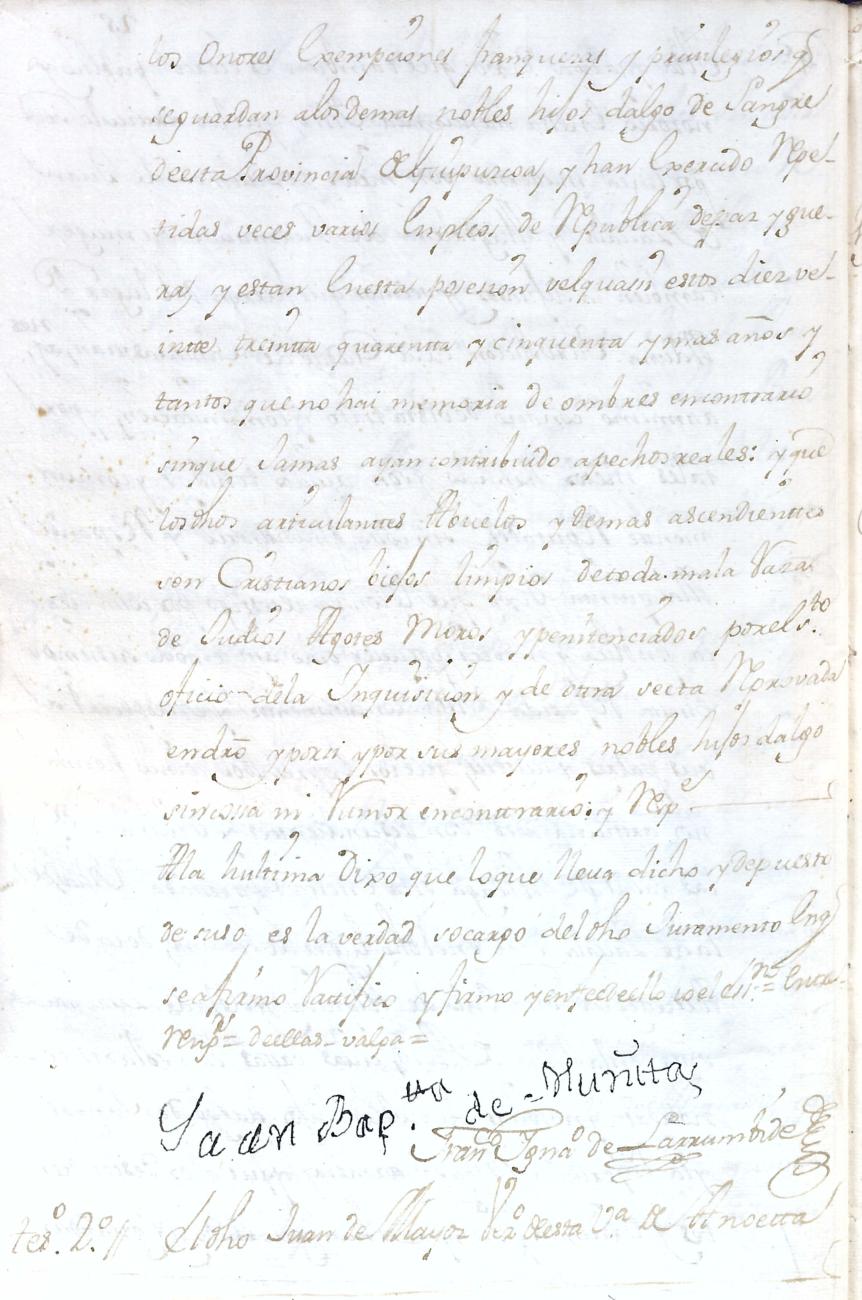 los Onores Exempciones franquezas y privilegios q
seguardan alosdemas nobles hijos dalgo de Sangre
deesta Provincia de Guipuzcoa, y han Exercido Repe-
tidas veces varios Empleos de Republica depaz y gue-
rra, y estan Enesta posesion velquasi estos diez ve-
intte treintta quarentta y cinquenta ymas años y
tantos que no hai memoria de ombres encontrario
sinque Jamas ayan contribuido apechos reales: yque
losdhos articulanttes Abuelos ydemas ascendienttes
son Cristianos biejos limpios detoda mala Raza
de Judios Agotes Moros ypenitenciados porel s.to
oficio dela Inquisicion y de otra secta Reprovada
endro yporsi ypor sus mayores nobles hijos dalgo
sincossa ni Rumor encontrario: y Resp.e
Ala hultima Dixo que loque lleva dicho ydepuesto
de suso es la verdad socargo deldho Juramento Enq
seafirmo Ratifico yfirmo yenfee deello yo el ess.no = Entre
Reng.s = deellas = valga =
Juan Bap.tta de Muñitta
Fran.co Ygn.o de Larrumbide
tes.o 2.o // Eldho Juan de Mayoz Vez.o deesta V.a de Anoetta